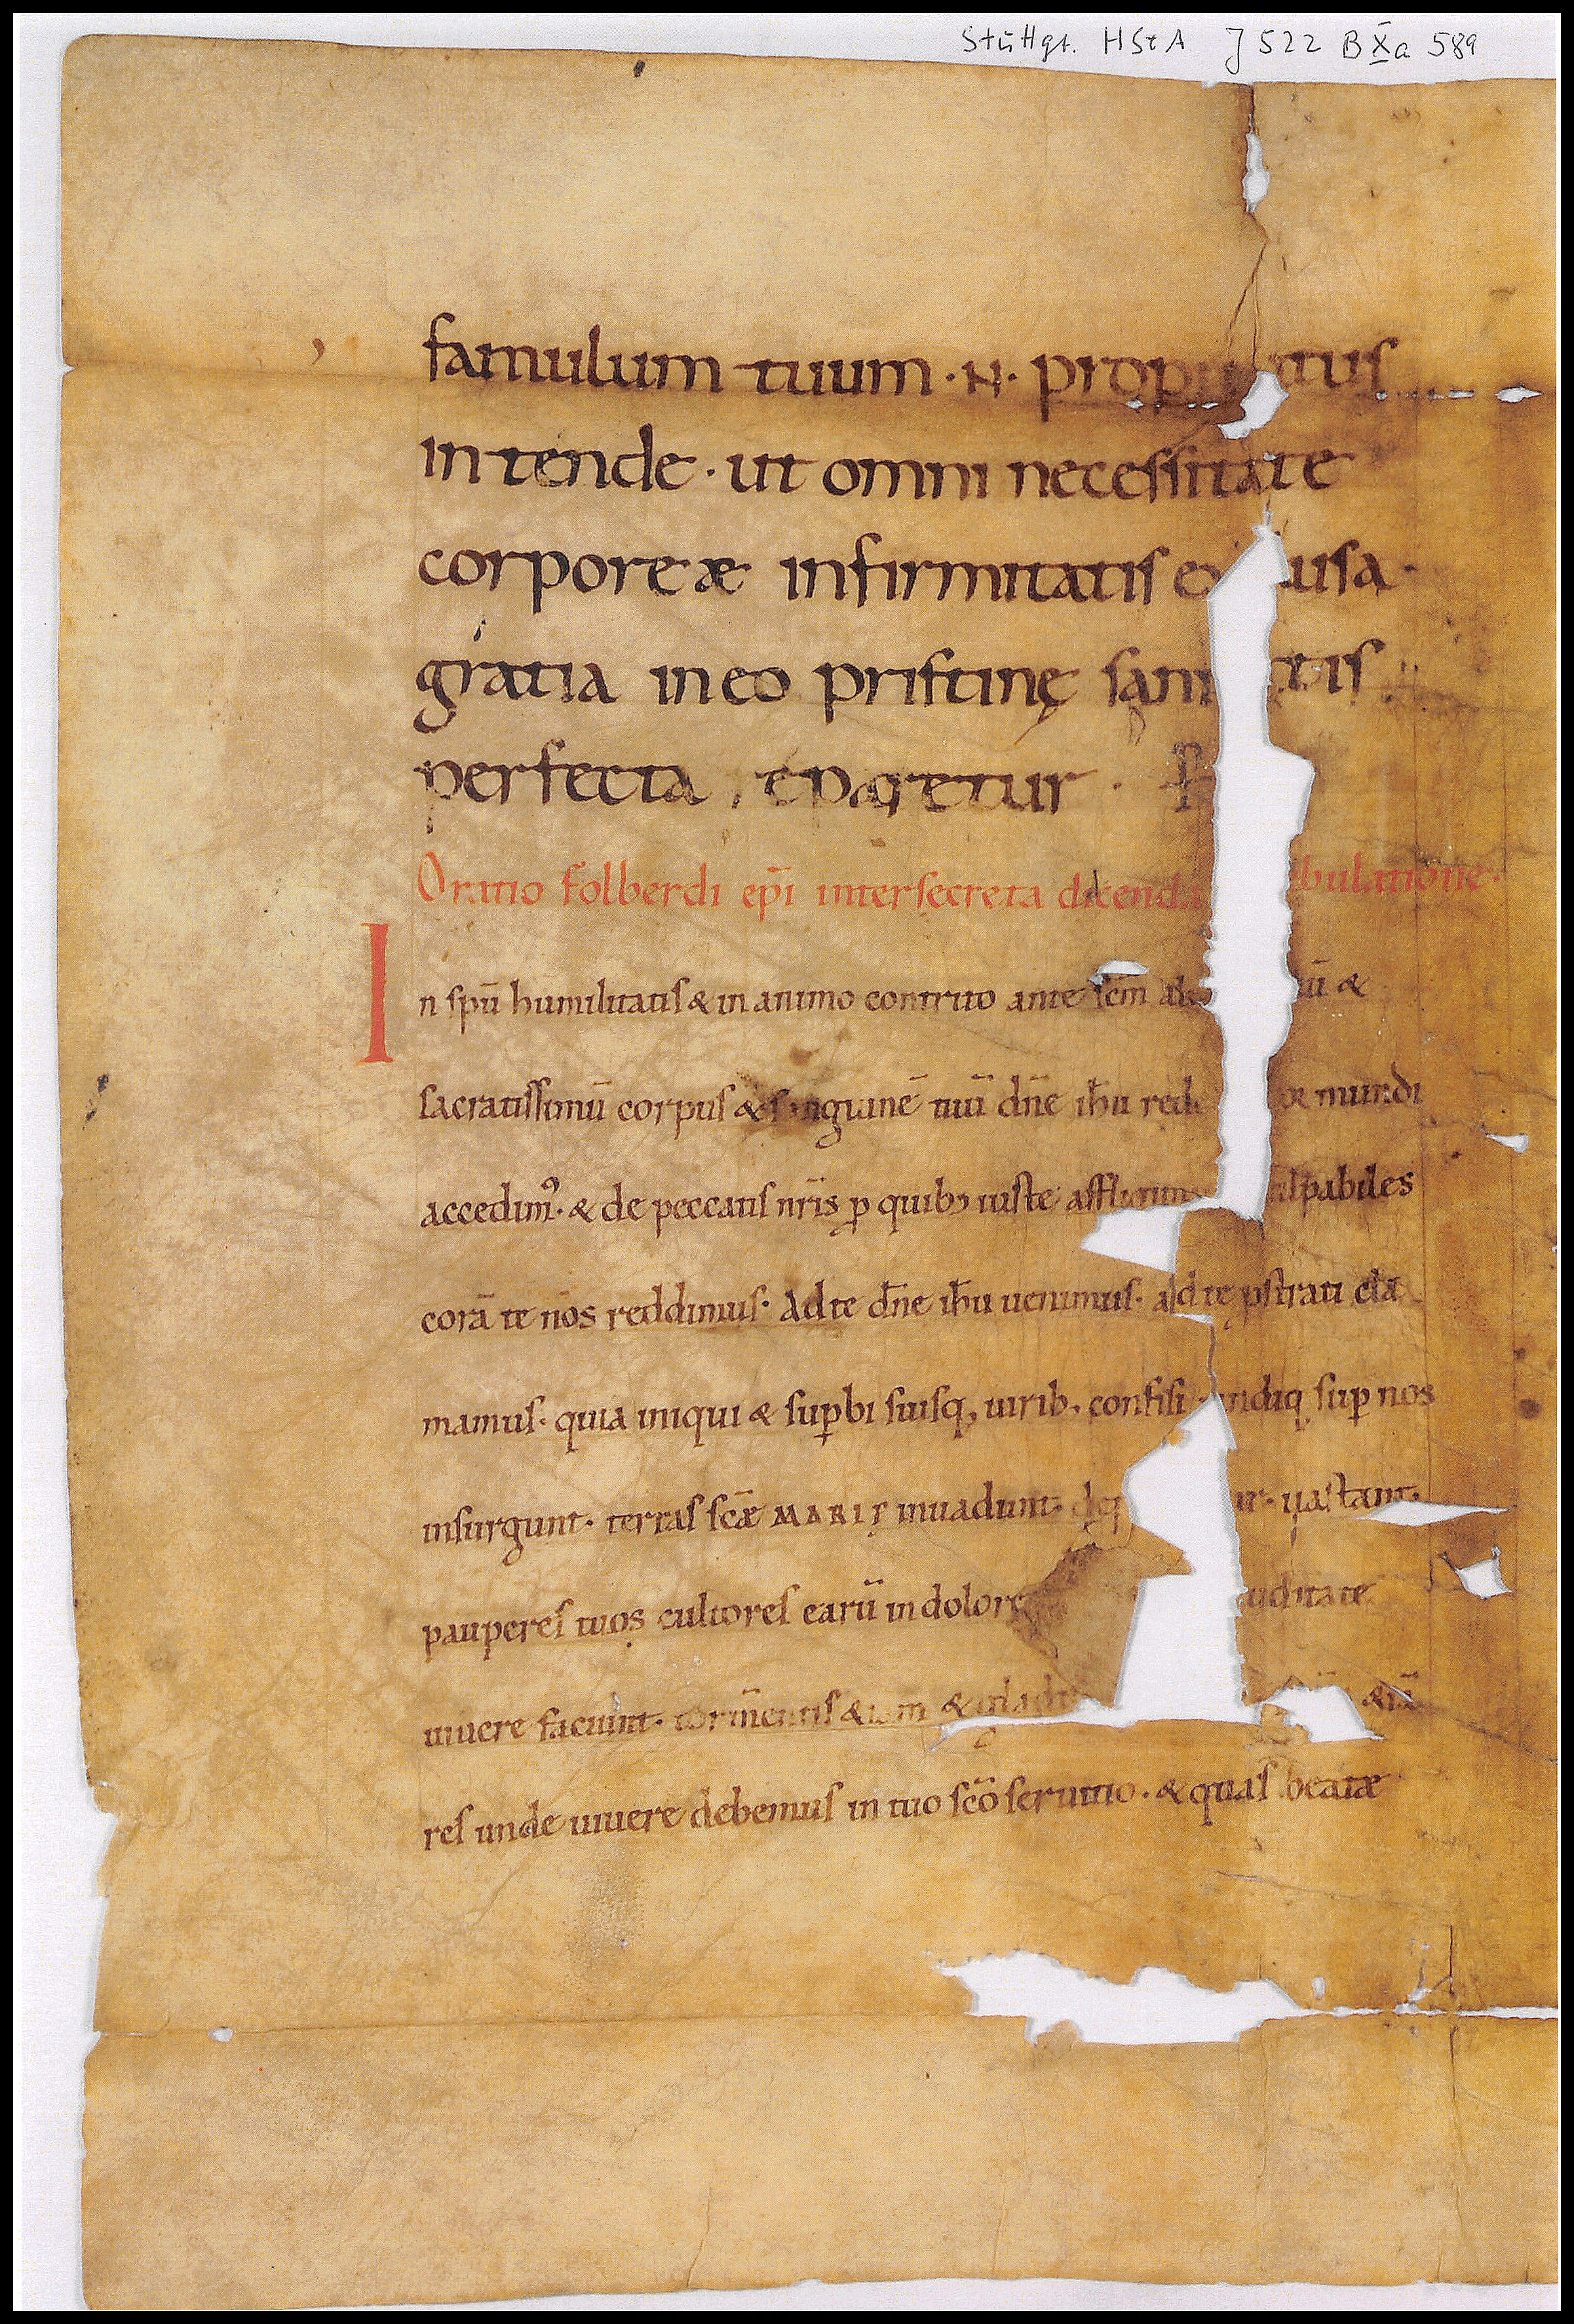 Stuttgt. HStA J 522 B X a 589
famulum tuum · N ·
intende · ut omni necessitate
corporeæ infirmitatis
gratia in eo pristinę
perfecta reparetur ·
Oratio folberdi ep̄i inter secreta dicenda
In spū humilitatis & in animo contrito ante sc̄m & 
sacratissimū corpus & sanguinē tuū dn̄e ih̄u mundi
accedim᾽ · & de peccatis nr̄is ꝑ quibꝫ iuste
corā te nos reddimus · Ad te dn̄e ih̄u uenimus · ad te ꝓstrati cla
mamus · quia iniqui & suꝑbi suisq; uirib; confisi · undiq; suꝑ nos
insurgunt · terras sc̄æ MARIĘ inuadunt · uastant ·
pauperes tuos cultores earū in dolore
uiuere faciunt · tormentis &iam &
res unde uiuere debemus in tuo sc̄o seruitio · & quas beatæ